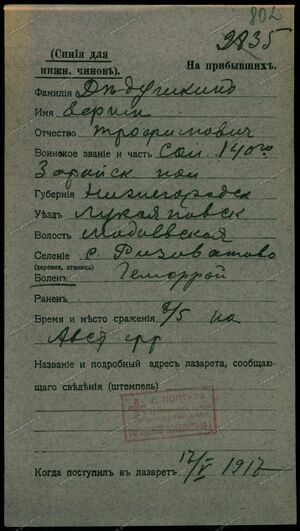 802
9835
(Синія для
нижн. чиновъ).
На прибывшихъ.
Фамилія Дѣдушкинъ
Имя Ефрем
Отчество Трофимович
Воинское званіе и часть Сол. 140го
Зарайск пол
Губернія Нижегородск
Уѣздъ Лукояновск
Волость Мадаевская
Селеніе с. Ризоватово
(деревня, станица)
Боленъ Геморрой
Раненъ
Время и мѣсто сраженія 8/5 на
Авст фр
Названіе и подробный адресъ лазарета, сообщаю-
щаго свѣдѣнія (штемпель)
ПОЛТАВА
Когда поступилъ въ лазаретъ 12/V 1917